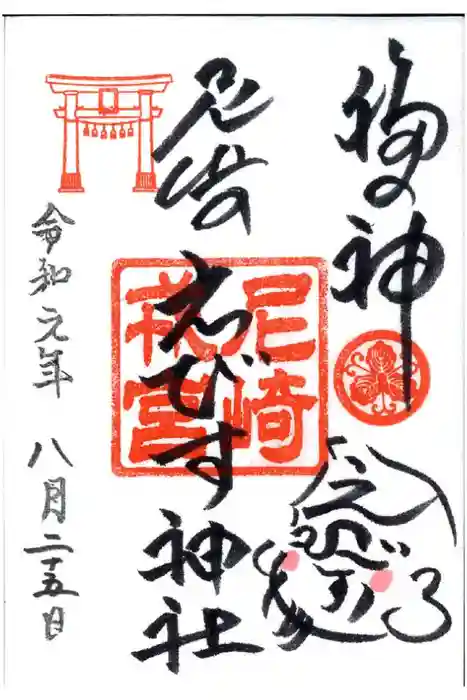 福の神
尼崎
えびす神社
尼崎
戎宮
令和元年 八月二十五日